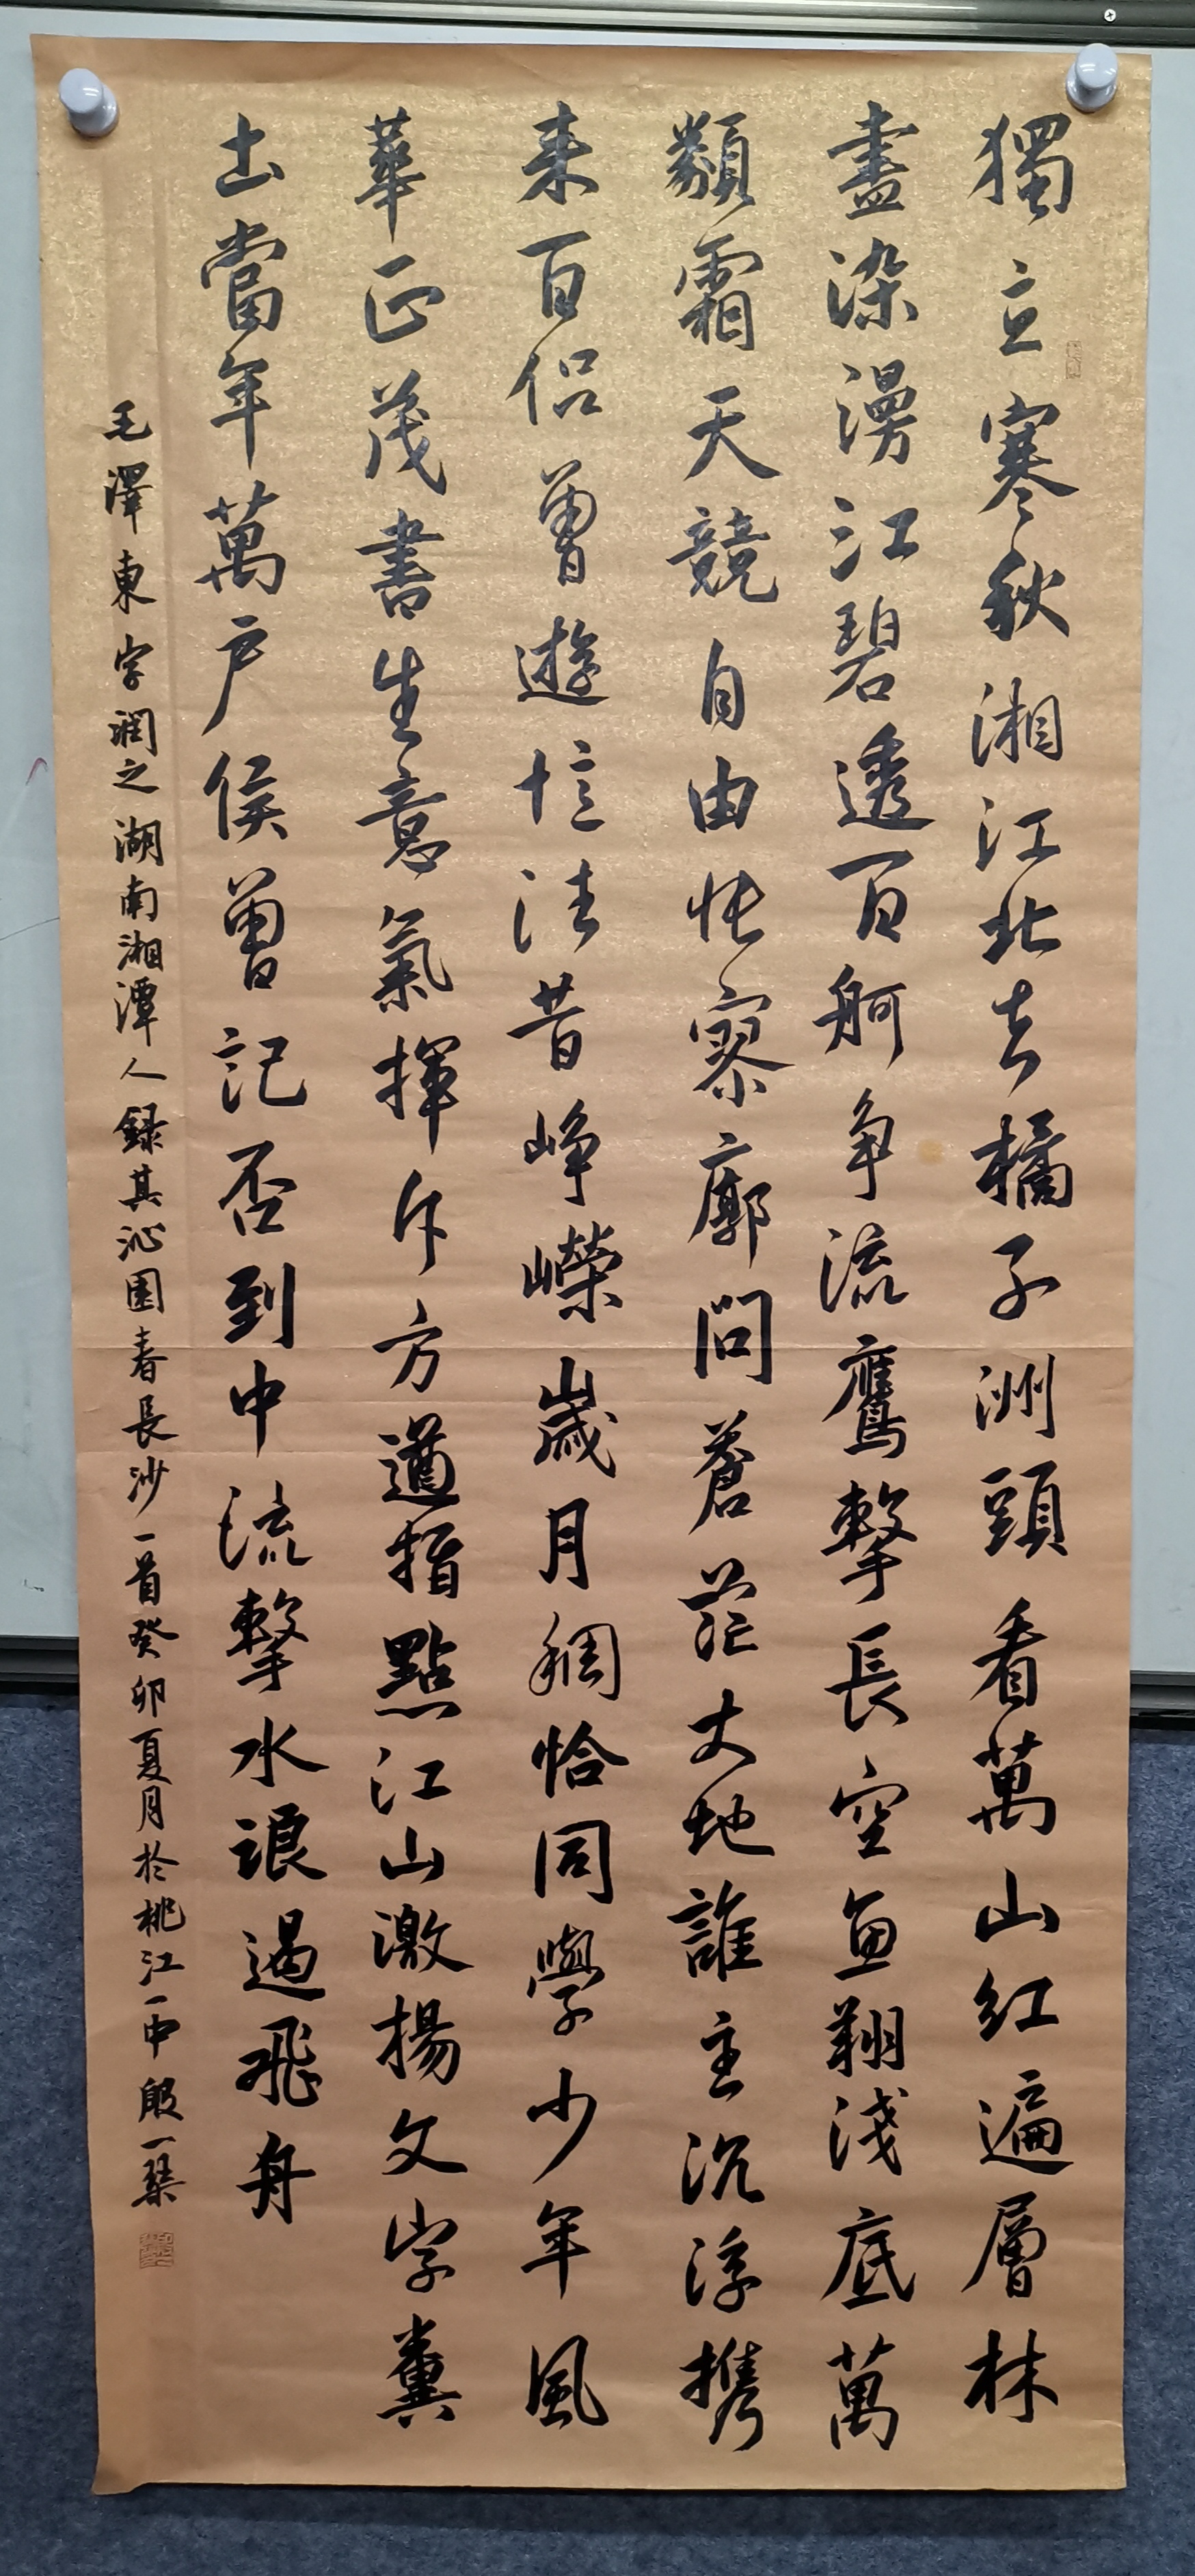 獨立寒秋湘江北去橘子洲頭看萬山紅遍層林
盡染漫江碧透百舸争流鷹擊長空魚翔淺底萬
類霜天競自由悵寥廓問蒼茫大地誰主沉浮携
来百侣曾遊憶往昔崢嶸歲月稠恰同學少年風
華正茂書生意氣揮斥方遒指點江山激揚文字糞
土當年萬户侯曾記否到中流擊水浪遏飛舟
毛澤東字潤之湖南湘潭人録其沁園春長沙一首癸卯夏月於桃江一中殷一琹